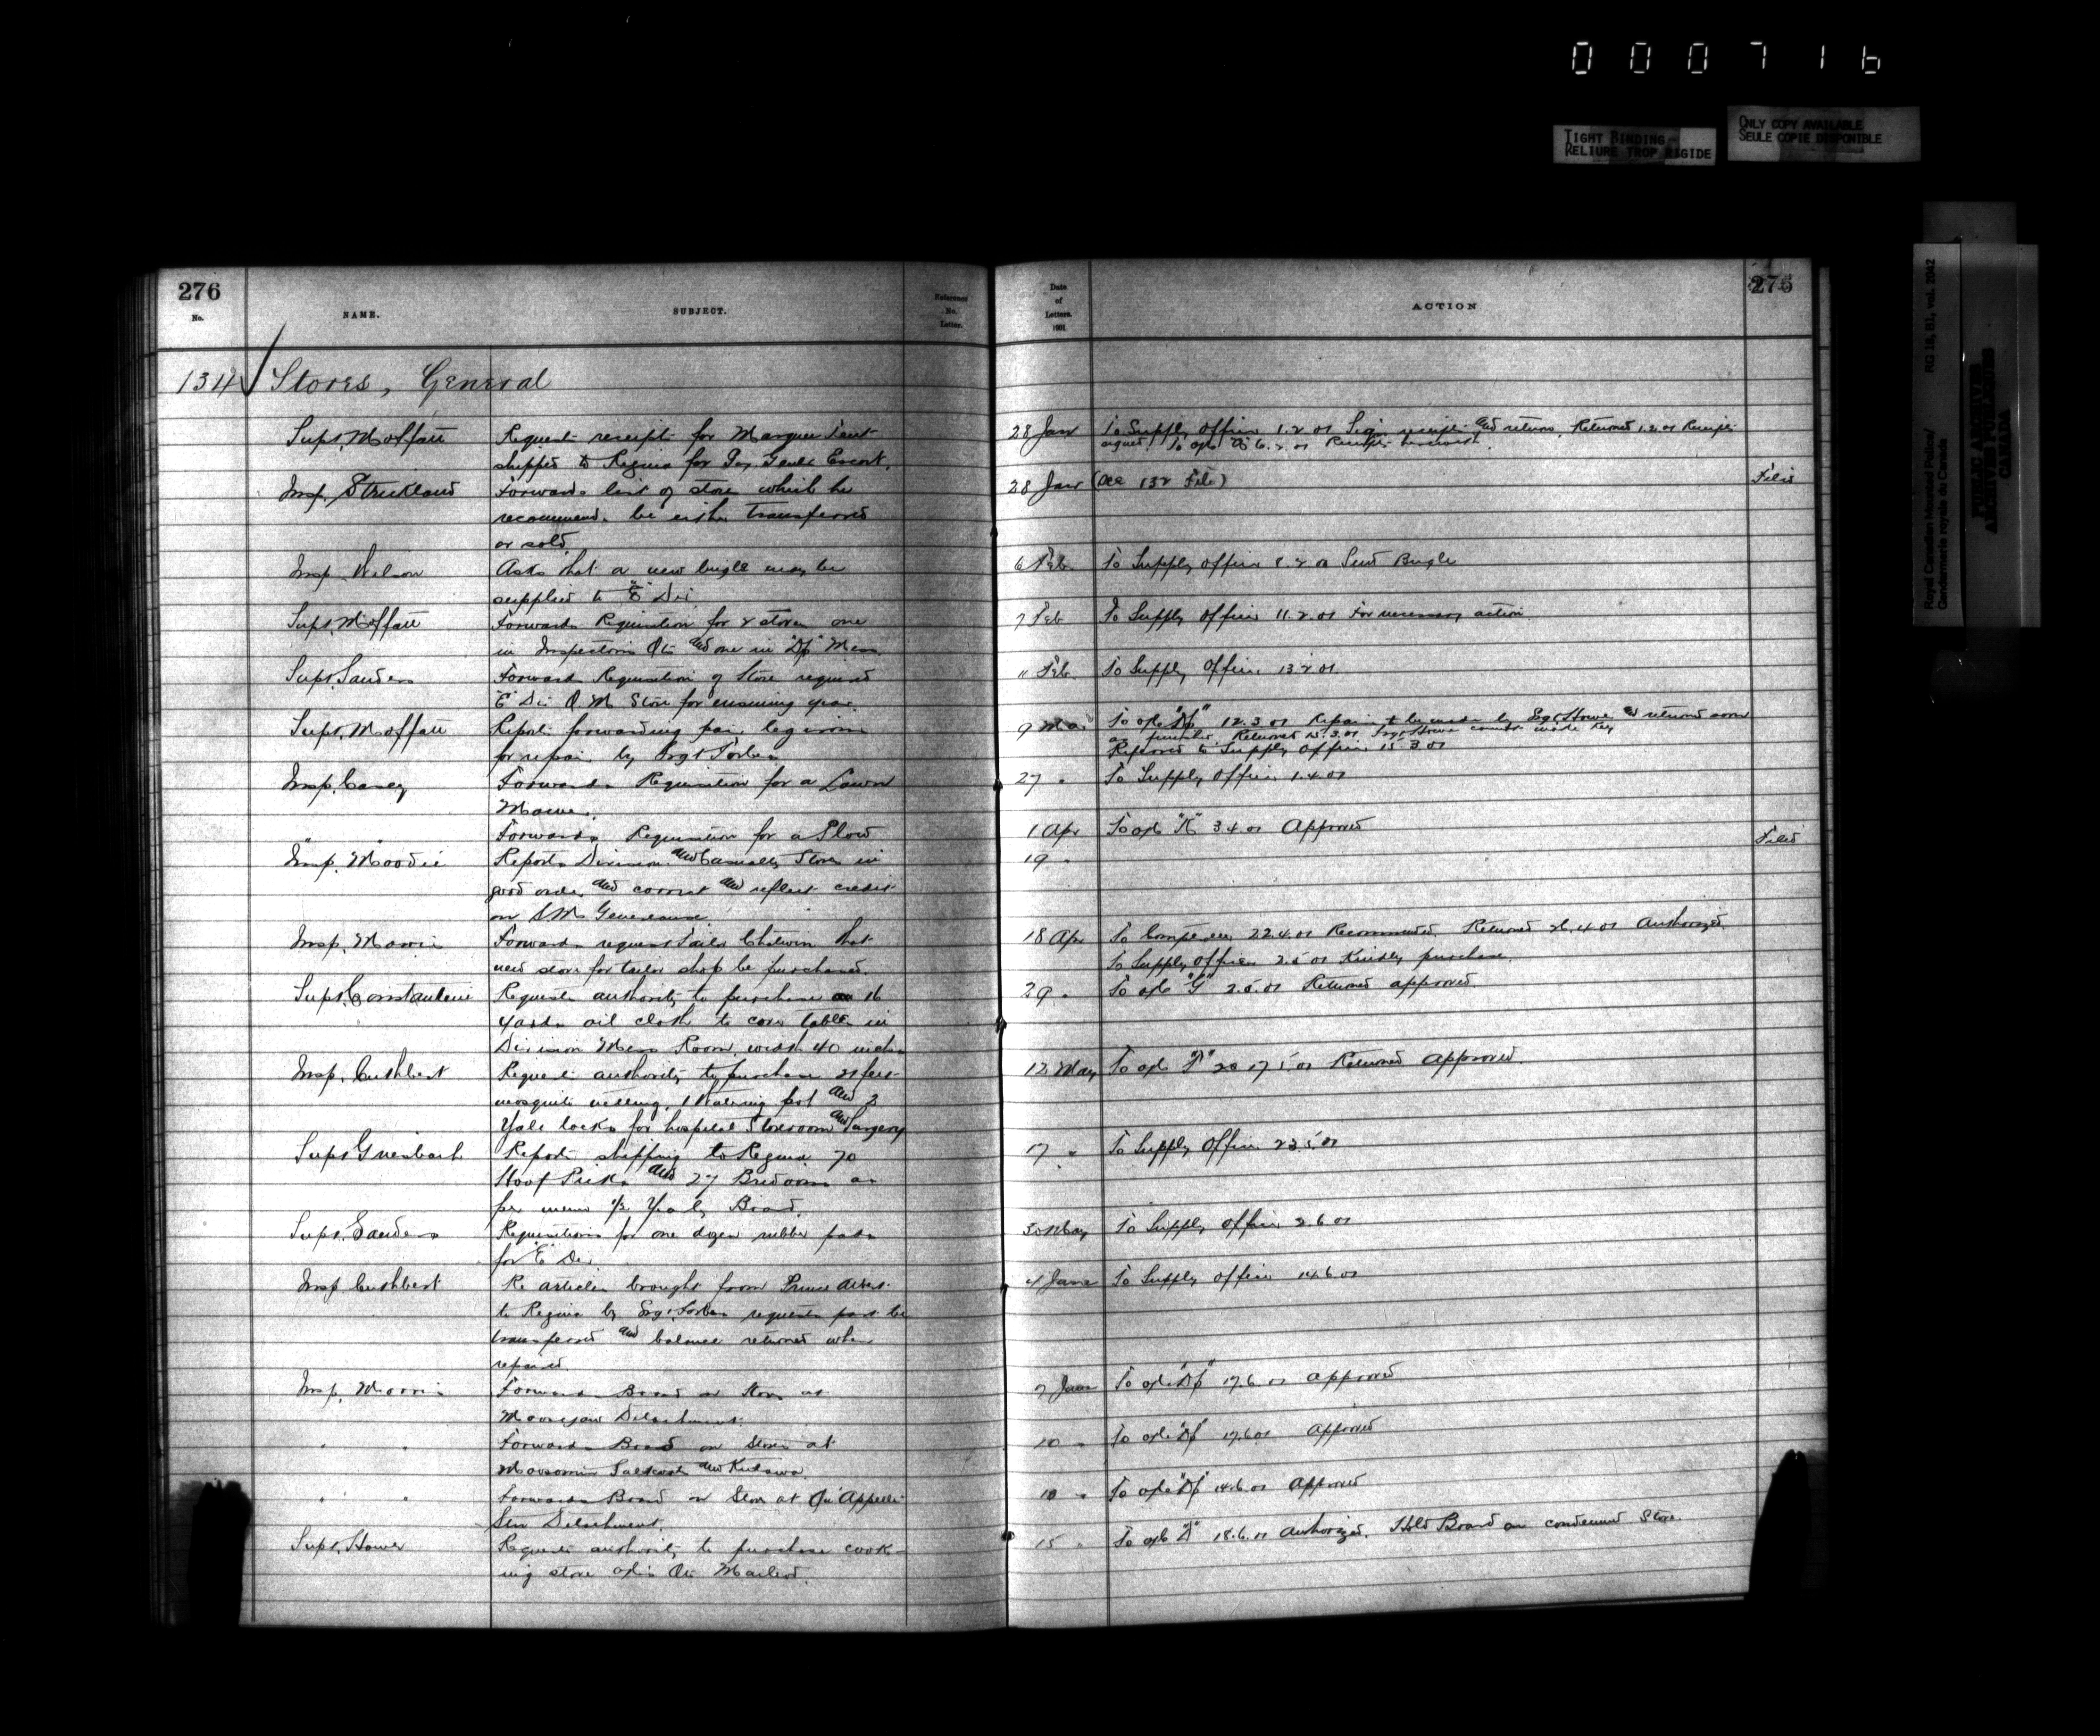 000716
TIGHT BINDING
RELIURE TROP RIGIDE
ONLY COPY AVAILABLE
SEULE COPIE DISPONIBLE
Royal Canadian Mounted Police/ RG 18, B1, vol. 2042
Gendarmerie royale du Canada
PUBLIC ARCHIVES
ARCHIVES PUBLIQUES
CANADA
276
No. NAME. SUBJECT. Reference No. Letter.
134 Stores, General
Supt. Moffatt Requests receipts for Marquee Tent
shipped to Regina for Gov. Genls Escort.
Insp. Strickland Forwards list of stores which he
recommends be either transferred
or sold.
Insp. Wilson Asks that a new bugle may be
supplied to "E" Div
Supt. Moffatt Forwards Requisition for 2 stoves one
in Inspectors Qts and one in "Dp" Mess.
Supt. Sanders Forwards Requisition of Stores required
"E" Div Q M Store for ensuing year.
Supt. Moffatt Reports forwarding pair leg irons
for repair by Sergt Forbes
Insp. Casey Forwards Requisition for a Lawn
Mower.
" " Forwards Requisition for a Plow
Insp. Moodie Reports Division and Casualty Stores in
good order and correct and reflect credit
on S.M. Genereux
Insp. Morris Forwards request Tailor that
new stove for tailor shop be purchased.
Supt. Constantine Requests authority to purchase 16
yards oil cloth to cover tables in
Division Mess Room, width 40 inches
Insp. Cuthbert Requests authority to purchase 21 feet
mosquito netting, 1 Watering pot and 2
Yale locks for hospital Storeroom and Surgery
Supt Griesbach Reports shipping to Regina 70
Hoof Picks and 27 Bridoons as
per memo 1/2 Yearly Board.
Supt. Sanders Requisitions for one dozen rubber pads
for "E" Div.
Insp Cuthbert Re articles brought from Prince Albert
to Regina by Sergt. Forbes requests part be
transferred and balance returned when
repaired.
Insp. Morris Forwards Board on Stores at
Moosejaw Detachment.
" " Forwards Board on Stores at
Moosomin Saltcoats and Kutawa.
" " Forwards Board on Stores at Qu'Appelle
Stn Detachment.
Supt. Howe Requests authority to purchase cook-
ing stove Qts Macleod.
Date of Letters. 1901 ACTION 276
28 Jan To Supply Officer 1.2.01 Sign receipts and return. Returned 1.2.01 Receipts
signed. To 6.2.01 Receipts herewith.
28 Jan (See 132 File) Filed
6 Feb. To Supply Officer 8.2.01 Send Bugle
7 Feb To Supply Officer 11.2.01 For necessary action.
11 Feb. To Supply Officer 13.2.01
9 Mar To "Dp" 12.3.01 Repairs to be made by Sergt Howe and returned soon
as finished. Returned 15.3.01. Sergt Howe cannot make key
Referred to Supply Officer 15.3.01
27 " To Supply Officer 1.4.01
1 Apr To "K" 3.4.01 Approved
19 " Filed
18 Apr To Comptroller 22.4.01 Recommended. Returned 26.4.01 Authorized.
To Supply Officer 2.5.01 Kindly purchase.
29 " To "G" 2.5.01 Returned approved.
12 May To "F" 17.5.01 Returned Approved.
17 " To Supply Officer 23.5.01
30 May To Supply Officer 2.6.01
4 June To Supply Officer 14.6.01
7 June To "Dp" 17.6.01 Approved
10 " To "Dp" 17.6.01 Approved
10 " To "Dp" 14.6.01 Approved
15 " To "D" 18.6.01 Authorized. Hold Board on condemned Stove.